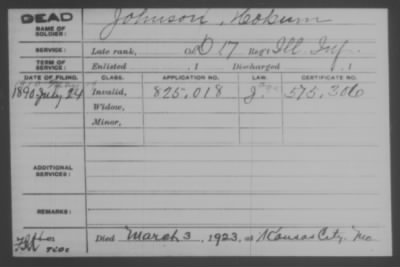 DEAD
NAME OF SOLDIER: Johnson, Hobum
SERVICE: Late rank, Co D 17 Reg't Ill. Inf.
TERM OF SERVICE: Enlisted , 1 Discharged , 1
DATE OF FILING. CLASS. APPLICATION NO. LAW. CERTIFICATE NO.
1890 July 24 Invalid, 825.018 575.306
Widow,
Minor,
ADDITIONAL SERVICES:
REMARKS:
Died March 3, 1923, at Kansas City Mo